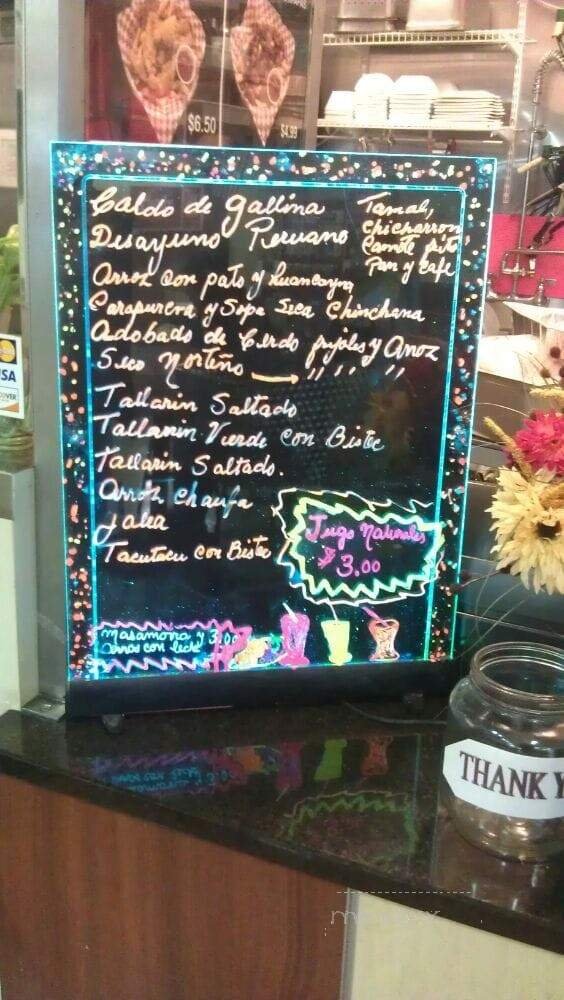 $6.50
$4.99
Caldo de gallina
Desayuno Peruano
Tamal,
Chicharron
Camote frito
Pan y Cafe
Arroz con pato y huancayna
Carapucra y Sopa Seca Chinchana
Adobado de Cerdo frijoles y Arroz
Seco Norteño → " " "
Tallarin Saltado
Tallarin Verde con Bistec
Tallarin Saltado.
Arroz chaufa
Jalea
Tacutacu con Bistec
Jugo Naturales
$3.00
masamorra y 3.00
Arroz con leche
THANK Y